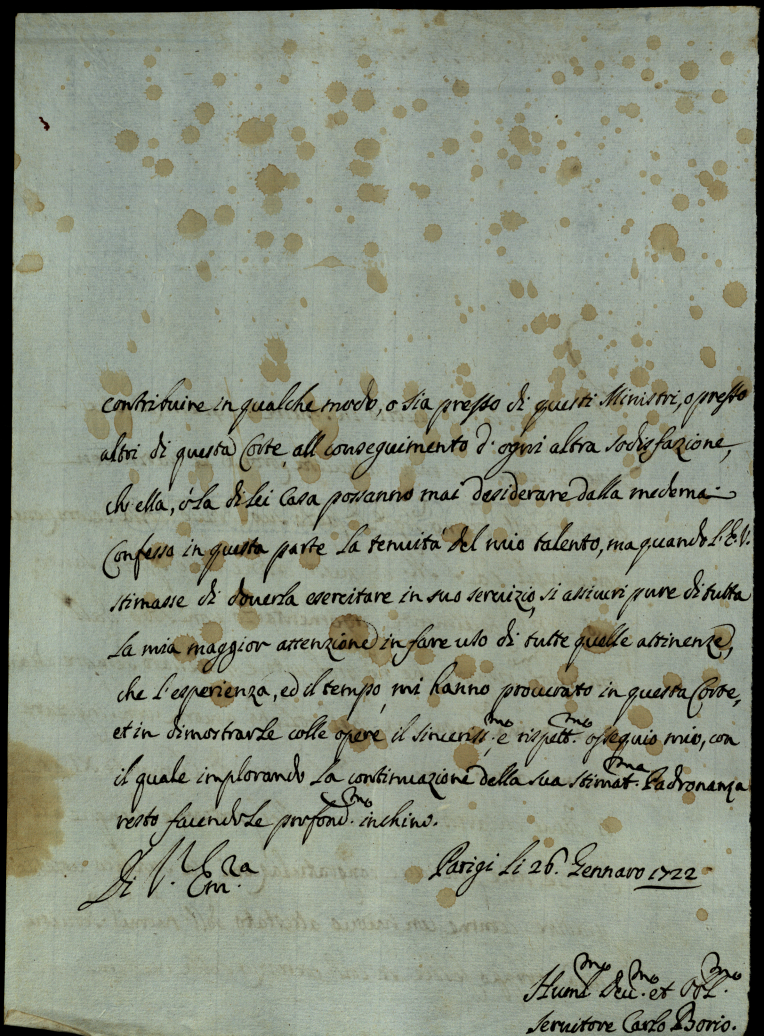 contribuire in qualche modo, o sia presso di questi Ministri, o presso
altri di questa Corte, all conseguimento d'ogni altra sodisfazione,
ch'ella, ó la di lei Casa possanno mai desiderare dalla medema.
Confesso in questa parte la tenuitá del mio talento, ma quando l'E.V.
stimasse di doverla esercitare in suo servizio, si assicuri pure di tutta
la mia maggior attenzione in fare uso di tutte quelle attinenze,
che l'esperienza, ed il tempo mi hanno procurato in questa Corte,
et in dimostrarle colle opere il sinceriss.mo e rispett.mo osseguio mio, con
il quale implorando la continuazione della sua stimat.ma Padronanza
resto facendole profond.mo inchino.
Di V. Em.za
Parigi li 26. Gennaro 1722
Huml.mo Dev.mo et Obl.mo
Servitore Carlo Borio.